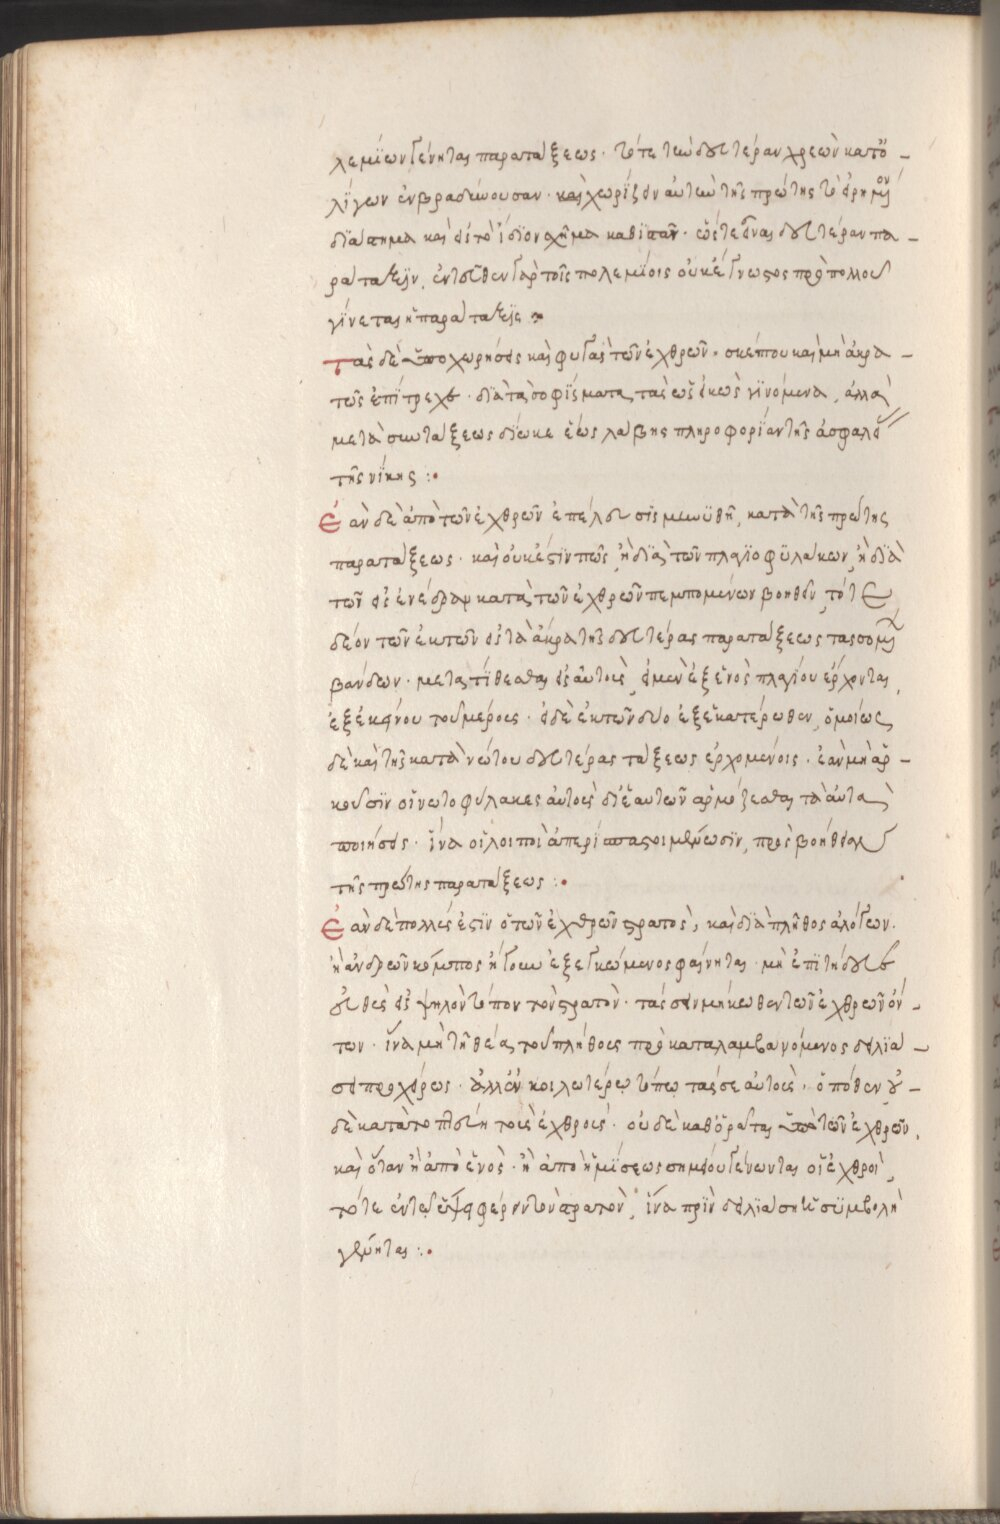 λεμίων γένηται παρατάξεως· τότε τὴν δευτέραν χρεὼν κατὀ–
λίγων ἐνβραδύνουσαν· καὶ χωρίζειν αὐτὴν τῆς πρώτης τὸ ὡρισμένον
διάστημα καὶ εἰ τὸ ἴδιον σχῆμα καθιστᾶν· ὥστε εἶναι δευτέραν πα–
ράταξιν, ἐντεῦθεν γὰρ τοῖς πολεμίοις οὐκ εὔγνωστος πρὸ πολλοῦ
γίνεται ἡ παράταξις
Τὰς δὲ ὑποχωρήσεις καὶ φυγὰς τῶν ἐχθρῶν· σκέπτου καὶ μὴ ἀκρα–
τῶς ἐπίτρεχε· διὰ τὰ σοφίσματα τὰ ὡς εἰκὸς γινόμενα, ἀλλὰ
μετὰ συντάξεως δίωκε ἕως λάβης πληροφορίαν τῆς ἀσφαλοῦς
τῆς νίκης :·
Ἐὰν δὲ ἀπὸ τῶν ἐχθρῶν ἐπέλευσις μηνυθῆ, κατὰ τῆς πρώτης
παρατάξεως· καὶ οὐκ ἔστιν πῶς ἢ διὰ τῶν πλαγιοφυλάκων, ἢ διὰ
τῶν εἰς ἐνέδραν κατὰ τῶν ἐχθρῶν πεμπομένων βοηθεῖν, τότε
δέον τῶν ἐκ τῶν εἰς τὰ ἄκρα τῆς δευτέρας παρατάξεως τασσομένων
βάνδων· μετατίθεσθαι εἰς αὐτοὺς, εἰ μὲν ἐξ ἑνὸς πλαγίου ἔρχονται,
ἐξ ἐκείνου τοῦ μέρους· εἰ δὲ ἐκ τῶν δύο ἐξ ἑκατέρωθεν, ὁμοίως
δὲ καὶ τῆς κατὰ νώτου δευτέρας τάξεως ἐρχομένοις· ἐὰν μὴ ἀρ–
κοῦσιν οἱ νωτοφύλακες αὐτοὺς δι' ἑαυτῶν ἁρμόζεσθαι τὰ αὐτὰ
ποιήσεις· ἵνα οἱ λοιποὶ ἀπερίσπαστοι μένωσιν, πρὸς βοήθειαν
τῆς πρώτης παρατάξεως :·
Ἐὰν δὲ πολλύς ἐστιν ὁ τῶν ἐχθρῶν στρατὸς, καὶ διὰ πλῆθος ἀλόγων.
ἢ ἀνδρῶν κόμπος ἤγουν ἐξεγκωμένος φαίνηται· μὴ ἐπιτήδευε
εὐθὺς εἰς ψηλὸν τόπον τὸν στρατὸν· τάσσειν μήκωθεν τῶν ἐχθρῶν ὄν
των· ἵνα μὴ τῆ θέα τοῦ πλήθους προκαταλαμβανόμενος δειλιά–
σει προχείρως· ἀλλ' ἐν κοιλωτέρω τόπω τάσσε αὐτοὺς, ὁπόθεν οὐ–
δὲ κατὰ τοπίζει τοὺς ἐχθροὺς· οὐδὲ καθορᾶται ὑπὸ τῶν ἐχθρῶν.
καὶ ὅταν ἢ ἀπὸ ἑνὸς· ἢ ἀπὸ ἡμίσεως σημείου γένωνται οἱ ἐχθροὶ,
τότε ἐν τάξει φέρειν τὸν στρατὸν, ἵνα πρὶν δειλιάση ἡ συμβολὴ
γένηται :·